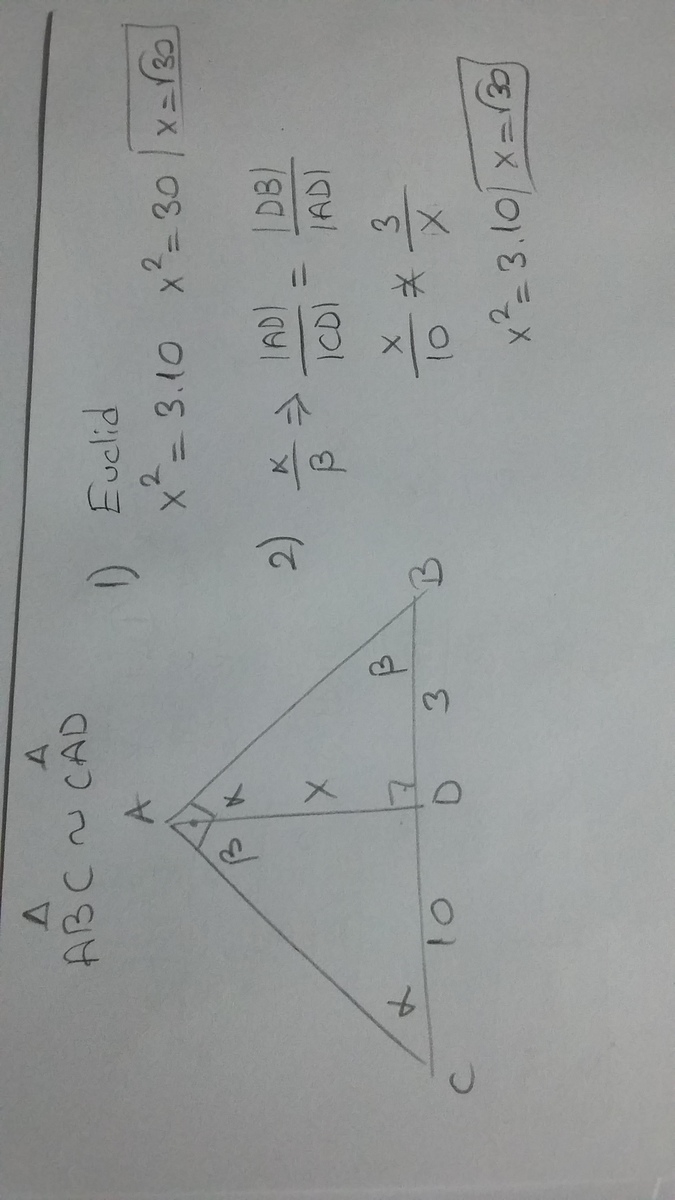 ABC ~ CAD
A
β α
x
α β
C 10 D 3 B
1) Euclid
x² = 3.10 x² = 30 | x=√30
2) α/β ⇒ |AD|/|CD| = |DB|/|AD|
x/10 * 3/x
x² = 3.10 | x=√30